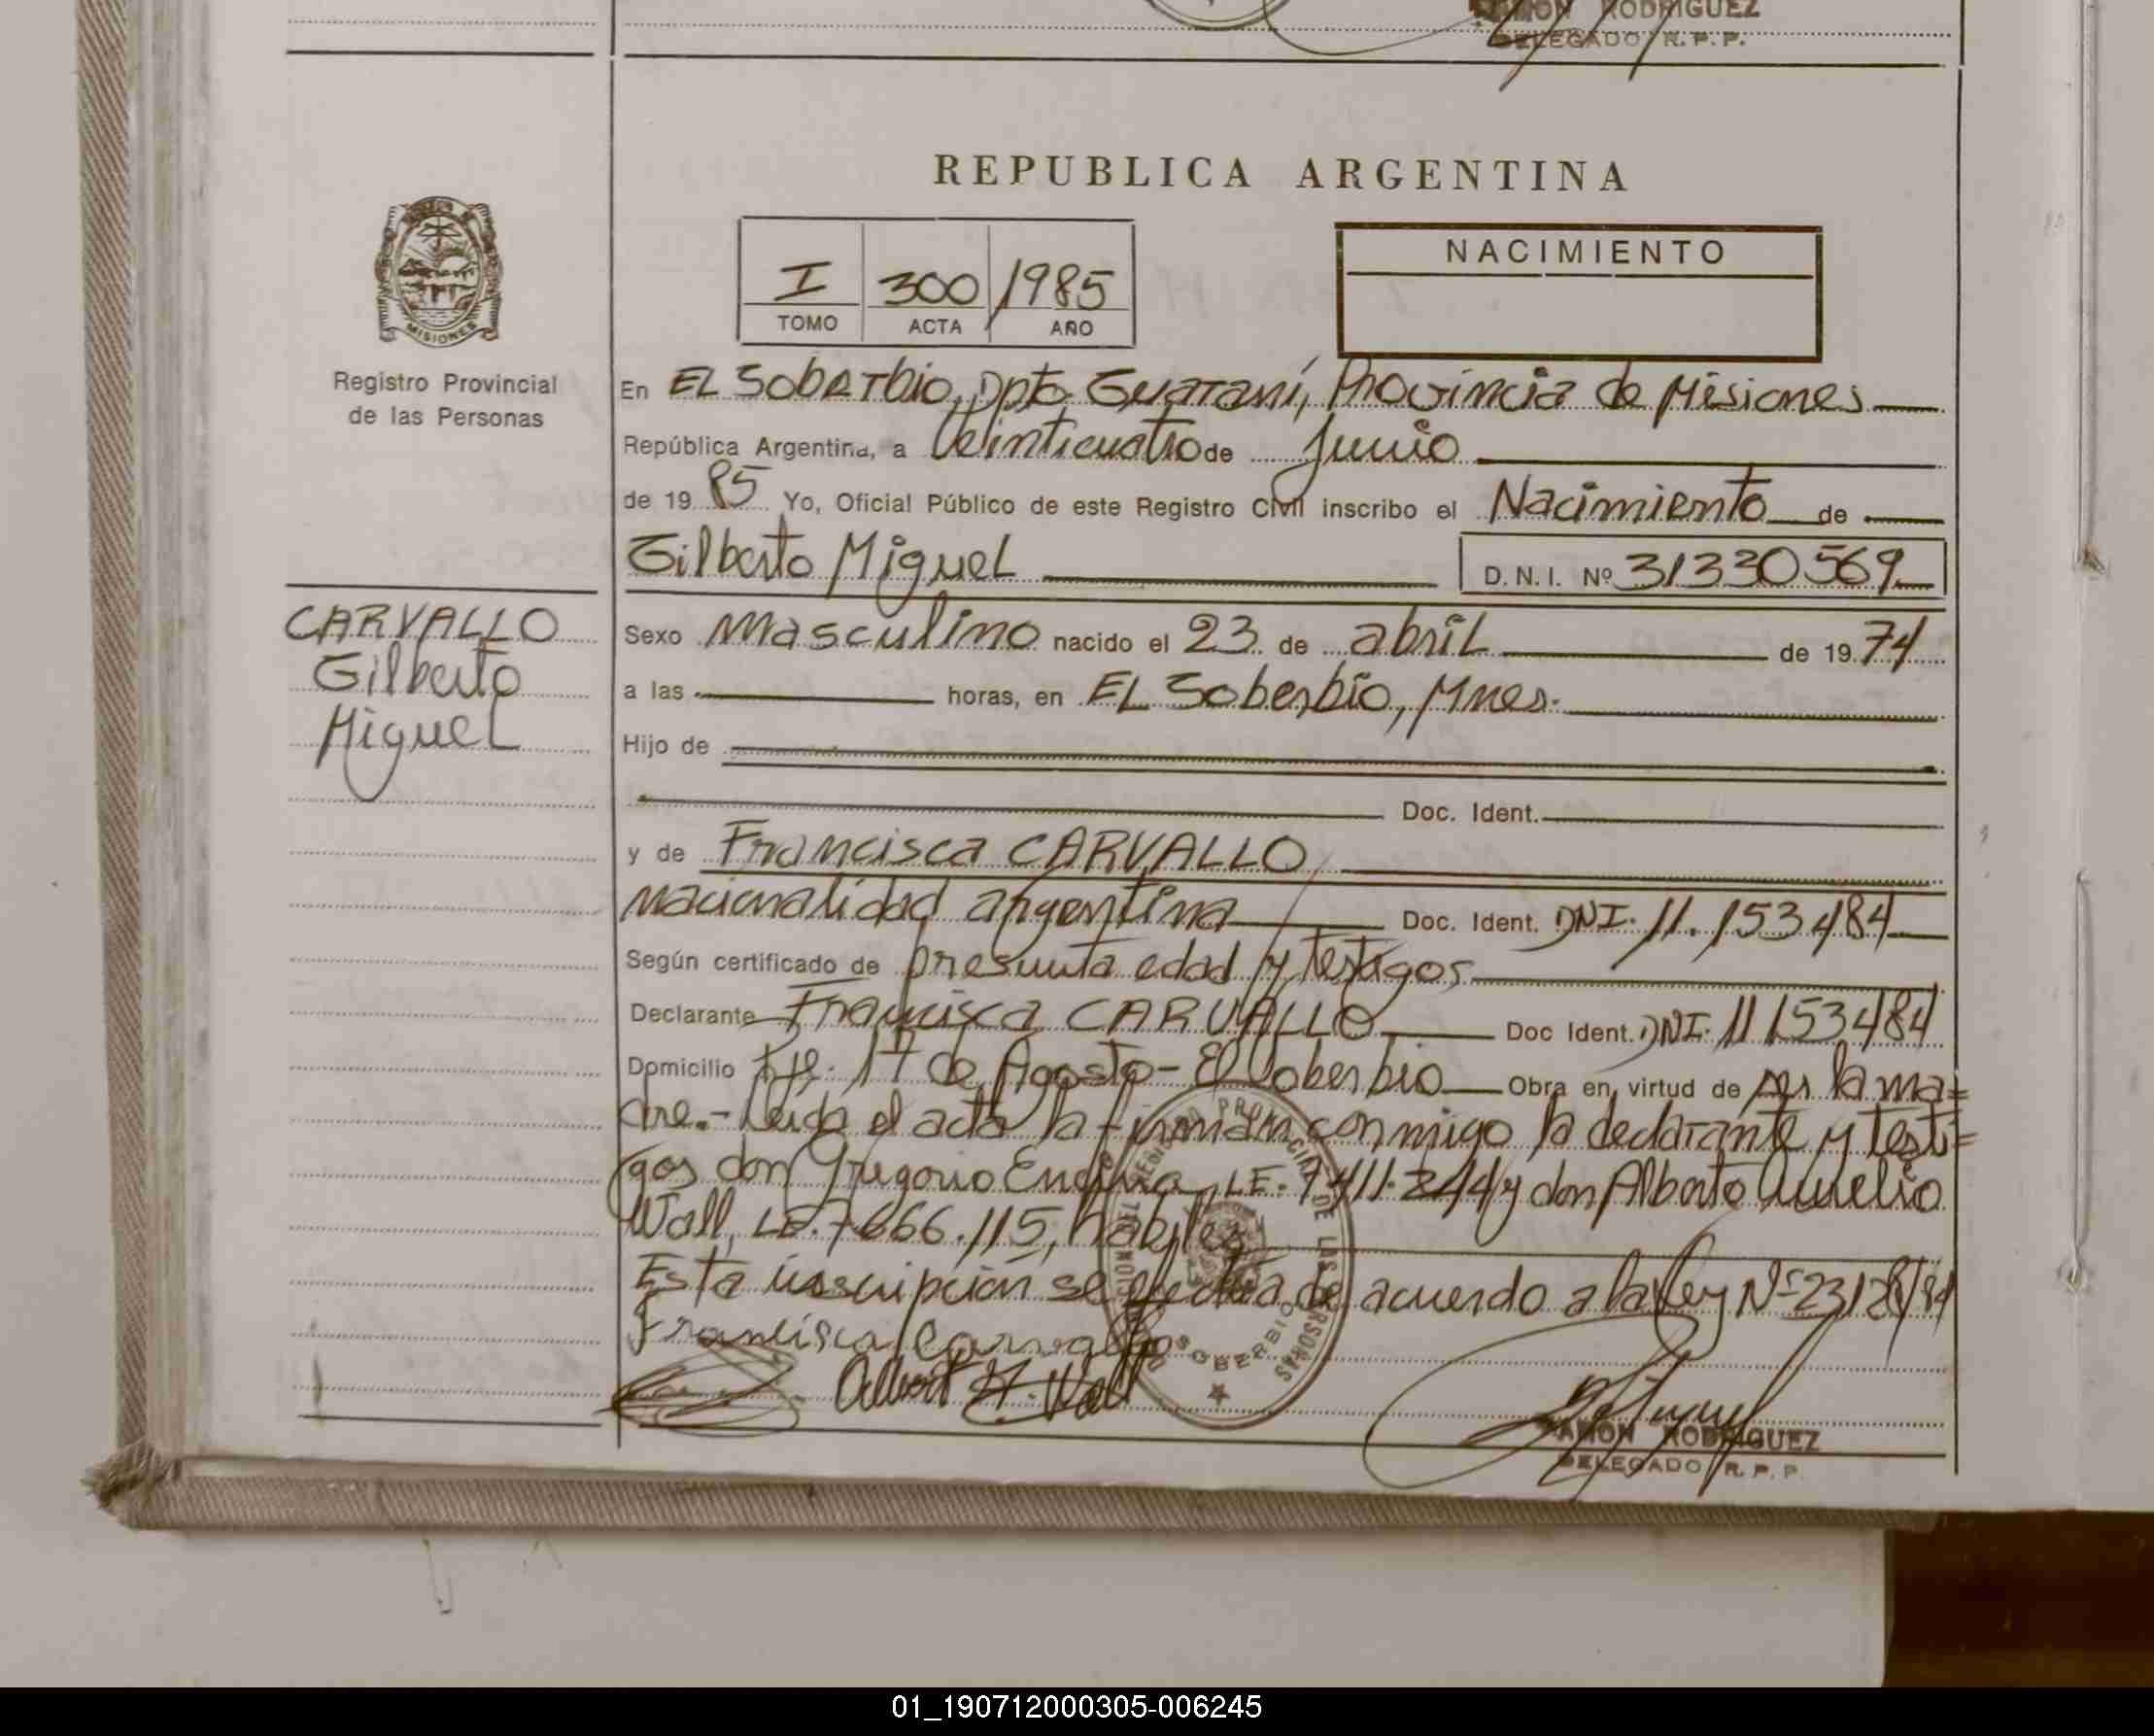 RAMON RODRIGUEZ
DELEGADO R. P. P.
REPUBLICA ARGENTINA
MISIONES
Registro Provincial
de las Personas
I 300 / 1985
TOMO ACTA AÑO
NACIMIENTO
En EL Soberbio, Dpto Guaraní, Provincia de Misiones
República Argentina, a Veinticuatro de Junio
de 19 85 Yo, Oficial Público de este Registro Civil inscribo el Nacimiento de
Gilberto Miguel D. N. I. Nº 31330569
CARVALLO
Gilberto
Miguel
Sexo Masculino nacido el 23 de abril de 19 74
a las horas, en EL Soberbio, Mnes.
Hijo de
Doc. Ident.
y de Francisca CARVALLO,
nacionalidad argentina Doc. Ident. DNI. 11.153484
Según certificado de presunta edad y testigos
Declarante Francisca CARVALLO Doc Ident. DNI. 11153484
Domicilio 17 de Agosto - El Soberbio Obra en virtud de ser la ma=
dre.- Leida el acta la firman conmigo la declarante y testi=
gos don Gregorio Encina, LE. 7411.244 y don Alberto Aurelio
Wall, LE. 7666.115, habiles
Esta inscripción se efectúa de acuerdo a la Ley Nº 23128/84
Francisca Carvallo
Albert A. Wall
EL SOBERBIO
RAMON RODRIGUEZ
DELEGADO R. P. P.
01_190712000305-006245